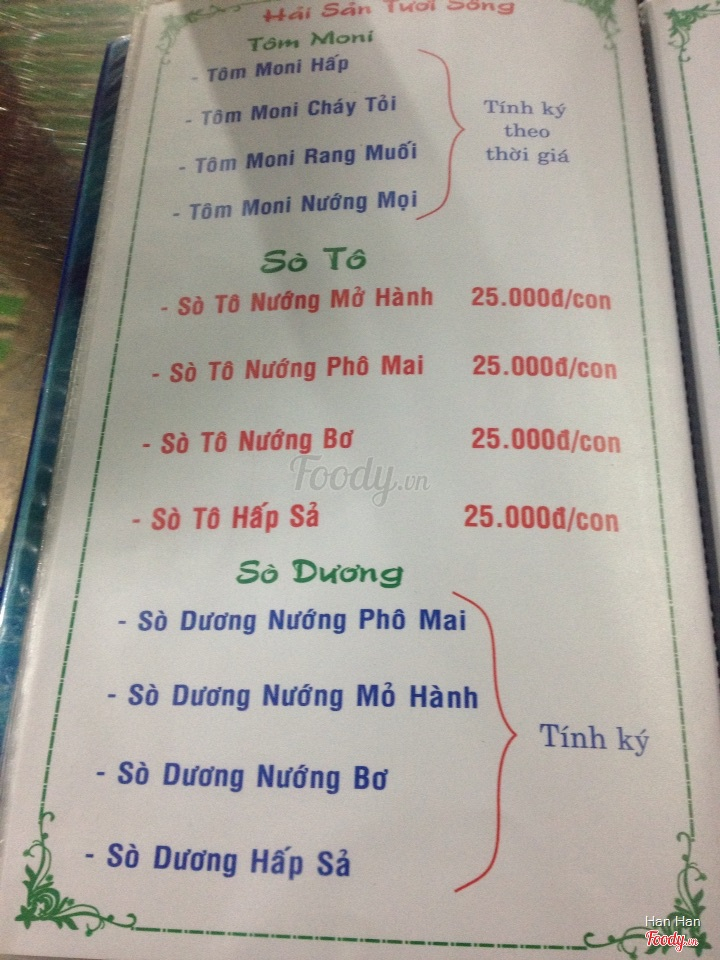 Hải Sản Tươi Sống
Tôm Moni
- Tôm Moni Hấp
- Tôm Moni Cháy Tỏi
- Tôm Moni Rang Muối
- Tôm Moni Nướng Mọi
Tính ký
theo
thời giá
Sò Tô
- Sò Tô Nướng Mở Hành 25.000đ/con
- Sò Tô Nướng Phô Mai 25.000đ/con
- Sò Tô Nướng Bơ 25.000đ/con
Foody.vn
- Sò Tô Hấp Sả 25.000đ/con
Sò Dương
- Sò Dương Nướng Phô Mai
- Sò Dương Nướng Mỏ Hành
- Sò Dương Nướng Bơ
- Sò Dương Hấp Sả
Tính ký
Han Han
Foody.vn